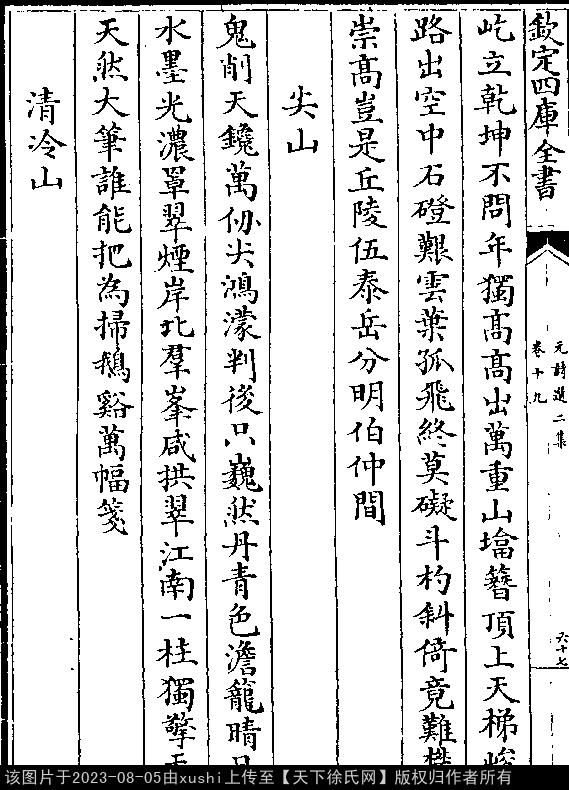 欽定四庫全書
元詩選二集
卷十九
六十七
屹立乾坤不問年獨高高出萬重山簪頂上天梯峻
路出空中石磴艱雲葉孤飛終莫礙斗杓斜倚竟難
崇高豈是丘陵伍泰岳分明伯仲間
尖山
鬼削天鑱萬仞尖鴻濛判後只巍然丹青色澹籠晴日
水墨光濃罩翠煙岸北羣峯咸拱翠江南一柱獨擎天
天然大筆誰能把為掃鵝谿萬幅箋
清冷山
该图片于2023-08-05由xushi上传至【天下徐氏网】版权归作者所有